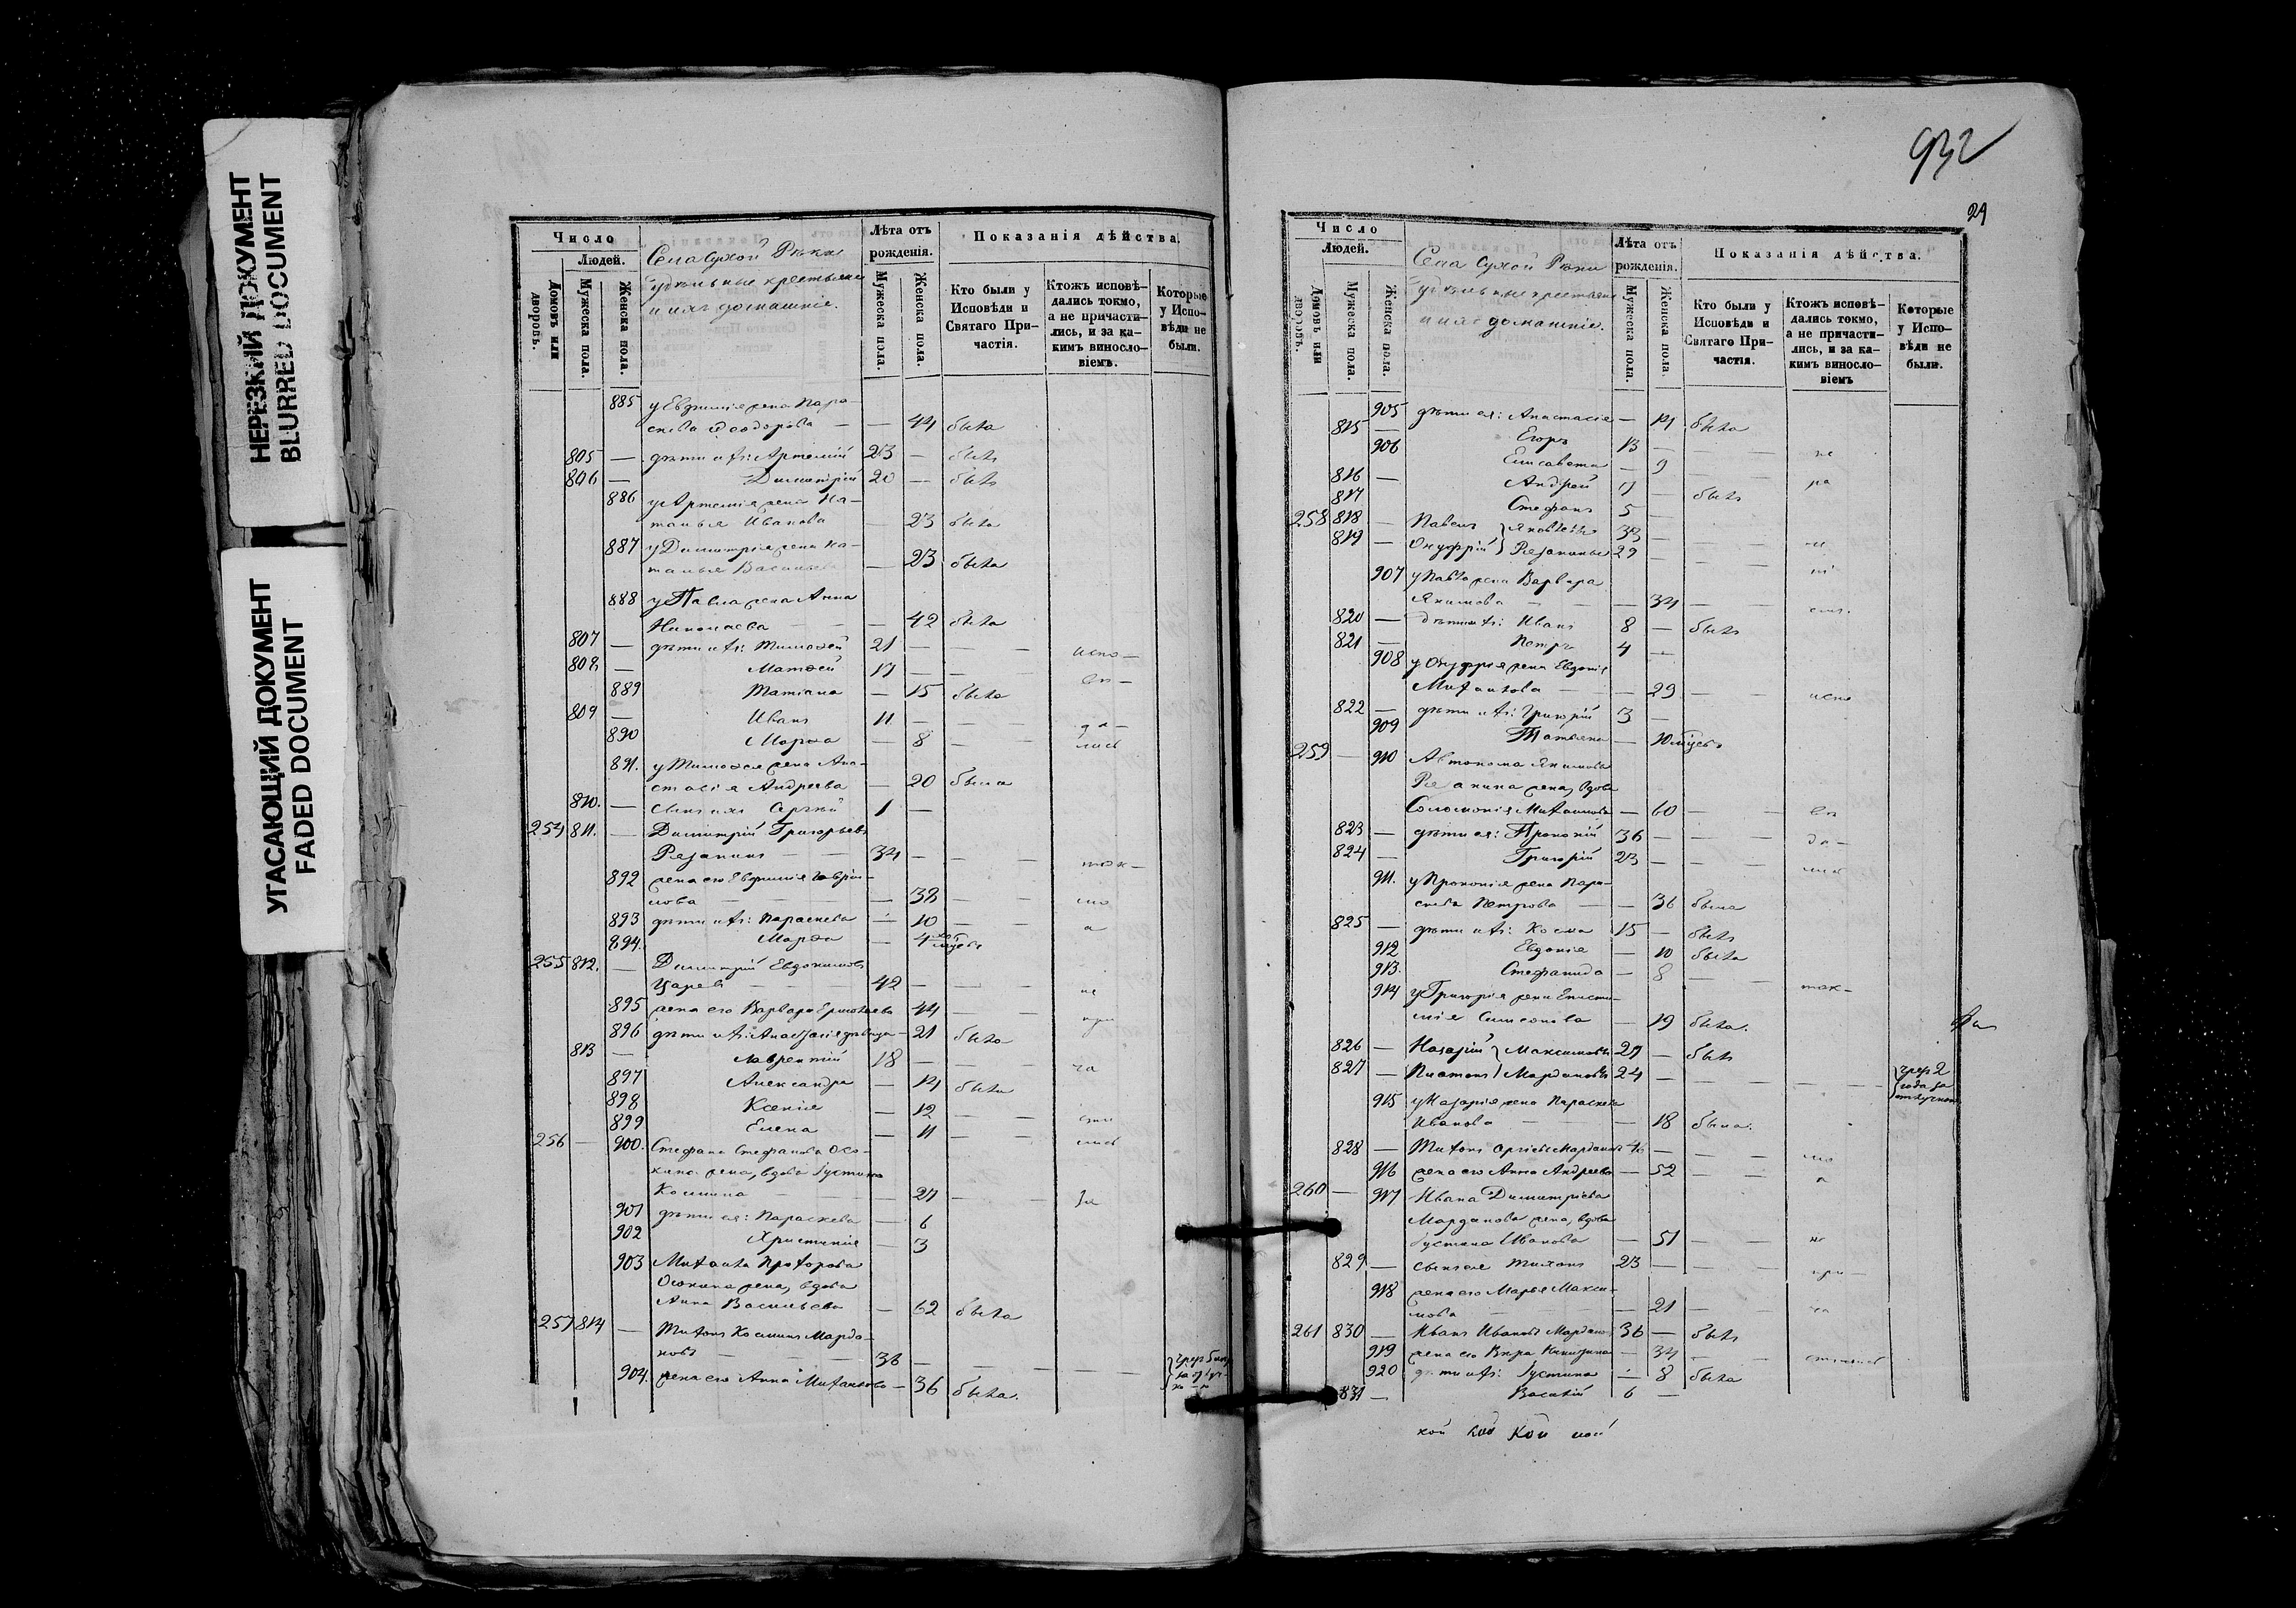 НЕРЕЗКИЙ ДОКУМЕНТ
BLURRED DOCUMENT
УГАСАЮЩИЙ ДОКУМЕНТ
FADED DOCUMENT
Число
Людей.
Домовъ или дворовъ.
Мужеска пола.
Женска пола.
Села Сухой Рѣки
удѣльные крестьяне
и ихъ домашніе.
Лѣта отъ рожденія.
Мужеска пола.
Женска пола.
Показанія дѣйства.
Кто были у Исповѣди и Святаго При-частія.
Ктожъ исповѣ-дались токмо, а не причасти-лись, и за ка-кимъ винословіемъ.
Которые у Испо-вѣди не были.
885 у Евфимія жена Пара-
скева Феодорова — — 44 была
805 — дѣти ихъ: Артемій 23 — былъ
806 — Димитрій 20 — былъ
886 у Артемія жена На-
талья Иванова 23 была
887 у Димитрія жена На-
талья Васильева — 23 была
888 у Павла жена Анна
Николаева — — 42 была
807 — дѣти ихъ: Тимофей 21 — — —
808 — Матфей 17 — — —
889 Татіана — 15 была
809 — Иванъ 11 — — —
890 Марфа — 8 — —
891. у Тимофея жена Ана-
стасія Андреева — 20 была
810. — сынъ ихъ Сергѣй 1 —
254 811. — Димитрій Григорьевъ
Резанинъ — — 34 — — —
892 жена его Евфимія Гаврі-
лова — — 38 — —
893 дѣти ихъ: Параскева — 10 —
894. Марфа — 4
255 812. — Димитрій Евдокимовъ
Царевъ — — 42 — — — не
895 жена его Варвара 44 — — при
896 дѣти ихъ: Анастасія дѣвица — 21 была
813 — Лаврентій 18 — — — ча
897 Александра — 14 была
898 Ксенія — 12 — — сти
899 Елена — 11 — — лись
256 — 900. Стефана Стефанова Осо-
кина жена, вдова Іустина
Космина — — 27 — — за
901 дѣти ея: Параскева — 6
902 Христинія — 3
903 Михаила Прохорова
Осокина жена, вдова
Анна Васильева — 62 была
257 814 — Титонъ Косминъ Марда-
новъ — — 36 — — — —
904. жена его Анна Михайлова — 36 была.
932
24
Число
Людей.
Домовъ или дворовъ.
Мужеска пола.
Женска пола.
Села Сухой Рѣки
удѣльные крестьяне
и ихъ домашніе.
Лѣта отъ рожденія.
Мужеска пола.
Женска пола.
Показанія дѣйства.
Кто были у Исповѣди и Святаго При-частія.
Ктожъ исповѣ-дались токмо, а не причасти-лись, и за ка-кимъ винословіемъ
Которые у Испо-вѣди не были.
905 дѣти ея: Анастасія — 14 была
815 — Егоръ 13 — — — не
906 Елисавета — 9 — —
816 — Андрей 17 — былъ
817 Стефанъ 5 —
258 818 — Павелъ } Яковлевы 33 —
819 — Онуфрій } Резанины 29 — — —
907 у Павла жена Варвара
Якимова — — — 34 — —
820 — дѣти ихъ: Иванъ 8 — былъ
821 — Петръ 4 —
908 у Онуфрія жена Евдокія
Михайлова — — 29 — —
822 — дѣти ихъ: Григорій 3 —
909 Татьяна — 10 мѣсяц
259 — 910 Автонома Якимова
Резанина жена, вдова
Соломонія Михайлова — 60 — —
823 — дѣти ея: Прокопій 36 — — —
824 — Григорій 23 — — —
911. у Прокопія жена Пара-
скева Петрова — — 36 была
825 — дѣти ихъ: Косма 15 — былъ
912 Евдокія — 10 была
913. Стефанида — 8 —
914 у Григорія жена Еписти-
мія Симеонова — 19 была.
826 — Назарій } Максимовы 27 — былъ
827 — Платонъ } Мардановы 24 — — — —
915 у Назарія жена Параскева
Иванова — — 18 была.
828 — Титонъ —
916 жена его Анна Андреева — 52 —
260 — 917 Ивана Димитріева
Марданова жена, вдова
Іустина Иванова — 51 — — не
829 — сынъ ея Тихонъ 23 — — — при
918 жена его Марья Макси-
мова — 21 — — ча
261 830 — Иванъ Ивановъ Марданов 36 — былъ
919 жена его Вера Никитина — 34 — — стились
920 дѣти ихъ: Іустина — 8 была
831 — Василій 6 —